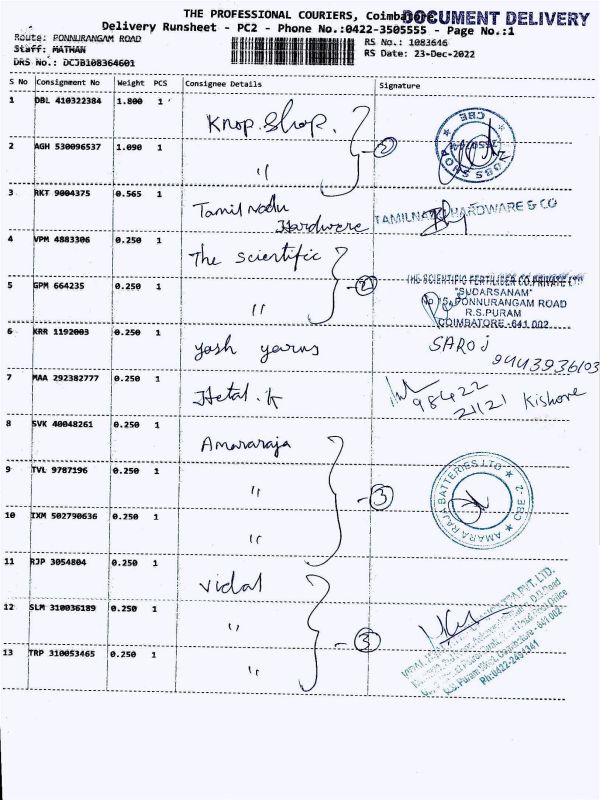 THE PROFESSIONAL COURIERS, Coimbatore
DOCUMENT DELIVERY
Delivery Runsheet - PC2 - Phone No.:0422-3505555 - Page No.:1
Route: PONNURANGAM ROAD
RS No.: 1083646
Staff: MATHAN
RS Date: 23-Dec-2022
DRS No.: DCJB108364601
S No Consignment No Weight PCS Consignee Details Signature
1 DBL 410322384 1.800 1 Knop. Shop.
2 AGH 530096537 1.090 1 " - 2
CBE
KOBBS SHOP
3 RKT 9004375 0.565 1 Tamil Nadu
Hardware
TAMILNADU HARDWARE & CO
4 VPM 4883306 0.250 1 The scientific
5 GPM 664235 0.250 1 " - 2
THE SCIENTIFIC FERTILISER CO.PRIVATE LTD
"SUDARSANAM"
No 15, PONNURANGAM ROAD
R.S.PURAM
COIMBATORE - 641 002
6 KRR 1192003 0.250 1 yash yarns
SAROJ
9443936103
7 MAA 292382777 0.250 1 Hetal. K
98422
21121 Kishore
8 SVK 40048261 0.250 1 Amararaja
9 TVL 9787196 0.250 1 " - 3
AMARA RAJA BATTERIES LTD ★ CBE-2 ★
10 IXM 502790636 0.250 1 "
11 RJP 3054804 0.250 1 vidal
12 SLM 310036189 0.250 1 " - 3
13 TRP 310053465 0.250 1 "
R.S. Puram West, Coimbatore - 641 002
Ph:0422-2491341